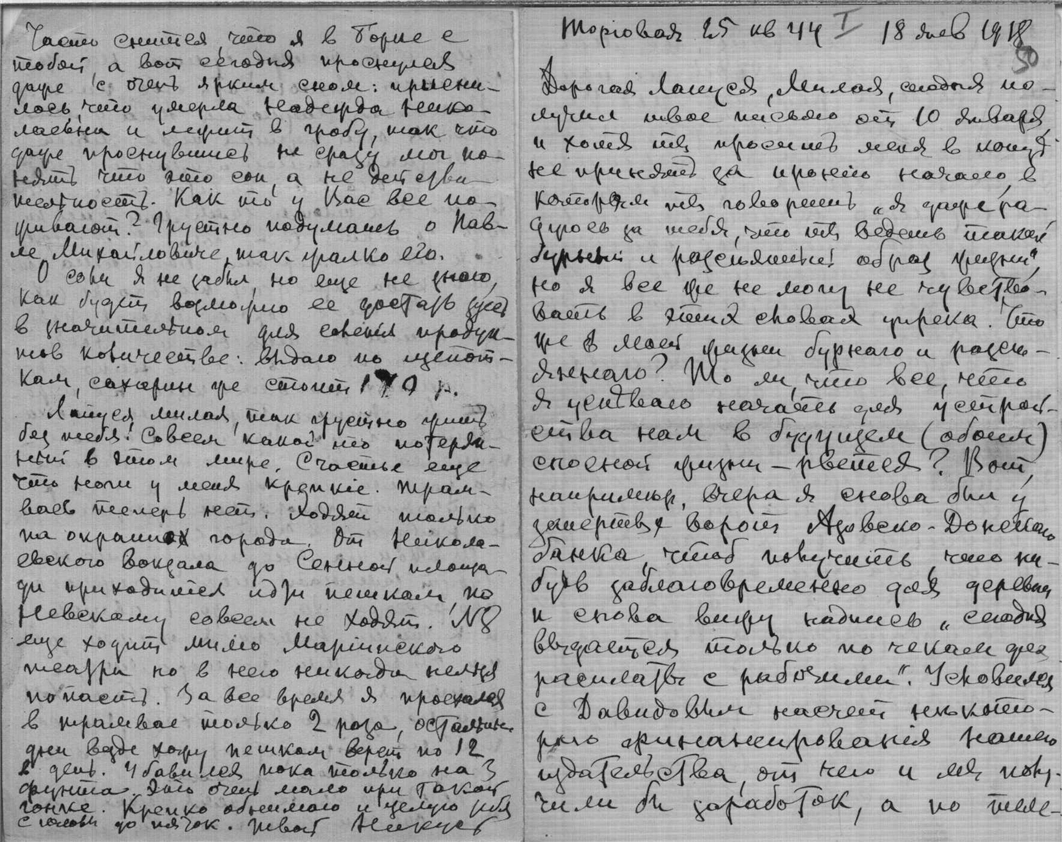 Часто снится, что я в Торне с
тобой, а вот сегодня проснулся
даже с очень ярким сном: присни-
лось, что умерла Надежда Нико-
лаевна и лежит в гробу, так что
даже проснувшись не сразу мог по-
нять что это сон, а не действи-
тельность. Как то у Вас все по-
живают? Грустно подумать о Пав-
ле Михайловиче, так жалко его.
О соли я не забыл, но еще не знаю,
как будет возможно ее достать здесь
в значительном для соленья продук-
тов количестве: выдают по щепот-
кам, сахарин же стоит 170 р.
Лапуся, милая, так грустно жить
без тебя! Совсем какой то потерян-
ный в этом мире. Счастье еще
что ноги у меня крѣпкіе. Трам-
ваев теперь нет. Ходят только
на окраинах города. От Никола-
евского вокзала до Сенной площа-
ди приходится идти пешком, по
Невскому совсем не ходят. №8
еще ходит мимо Маріинского
театра но в него никогда нельзя
попасть. За все время я проехался
в трамвае только 2 раза, остальные
дни хожу пешком верст по 12
в день. Убавился пока только на 3
фунта. Это очень мало при такой
гонке. Крепко обнимаю и целую тебя
с головы до пяток. Твой Никусь
Торговая 25 кв 44 I 18 янв 1918
50
Дорогая Лапуся, Милая, сегодня по-
лучил твое письмо от 10 Января
и хотя ты просишь меня в конце
не принять за иронію начало, в
котором ты говоришь „я даже ра-
дуюсь за тебя, что ты ведешь такой
бурный и разсеянный образ жизни“
но я все же не могу не чувство-
вать в этих словах упрека. Что
же в моей жизни бурнаго и разсе-
яннаго? То ли, что все, что
я успеваю начать для устрой-
ства нам в будущем (обоим)
сносной жизни – рвется? Вот,
например, вчера я снова был у
запертых ворот Азовско-Донского
банка, чтоб получить что ни-
будь заблаговременно для деревни
и снова вижу надпись „сегодня
выдается только по чекам для
расплаты с рабочими“. Условился
с Давидовым насчет некото-
рого финансированія нашего
издательства, от чего и мы полу-
чили бы заработок, а по теле-